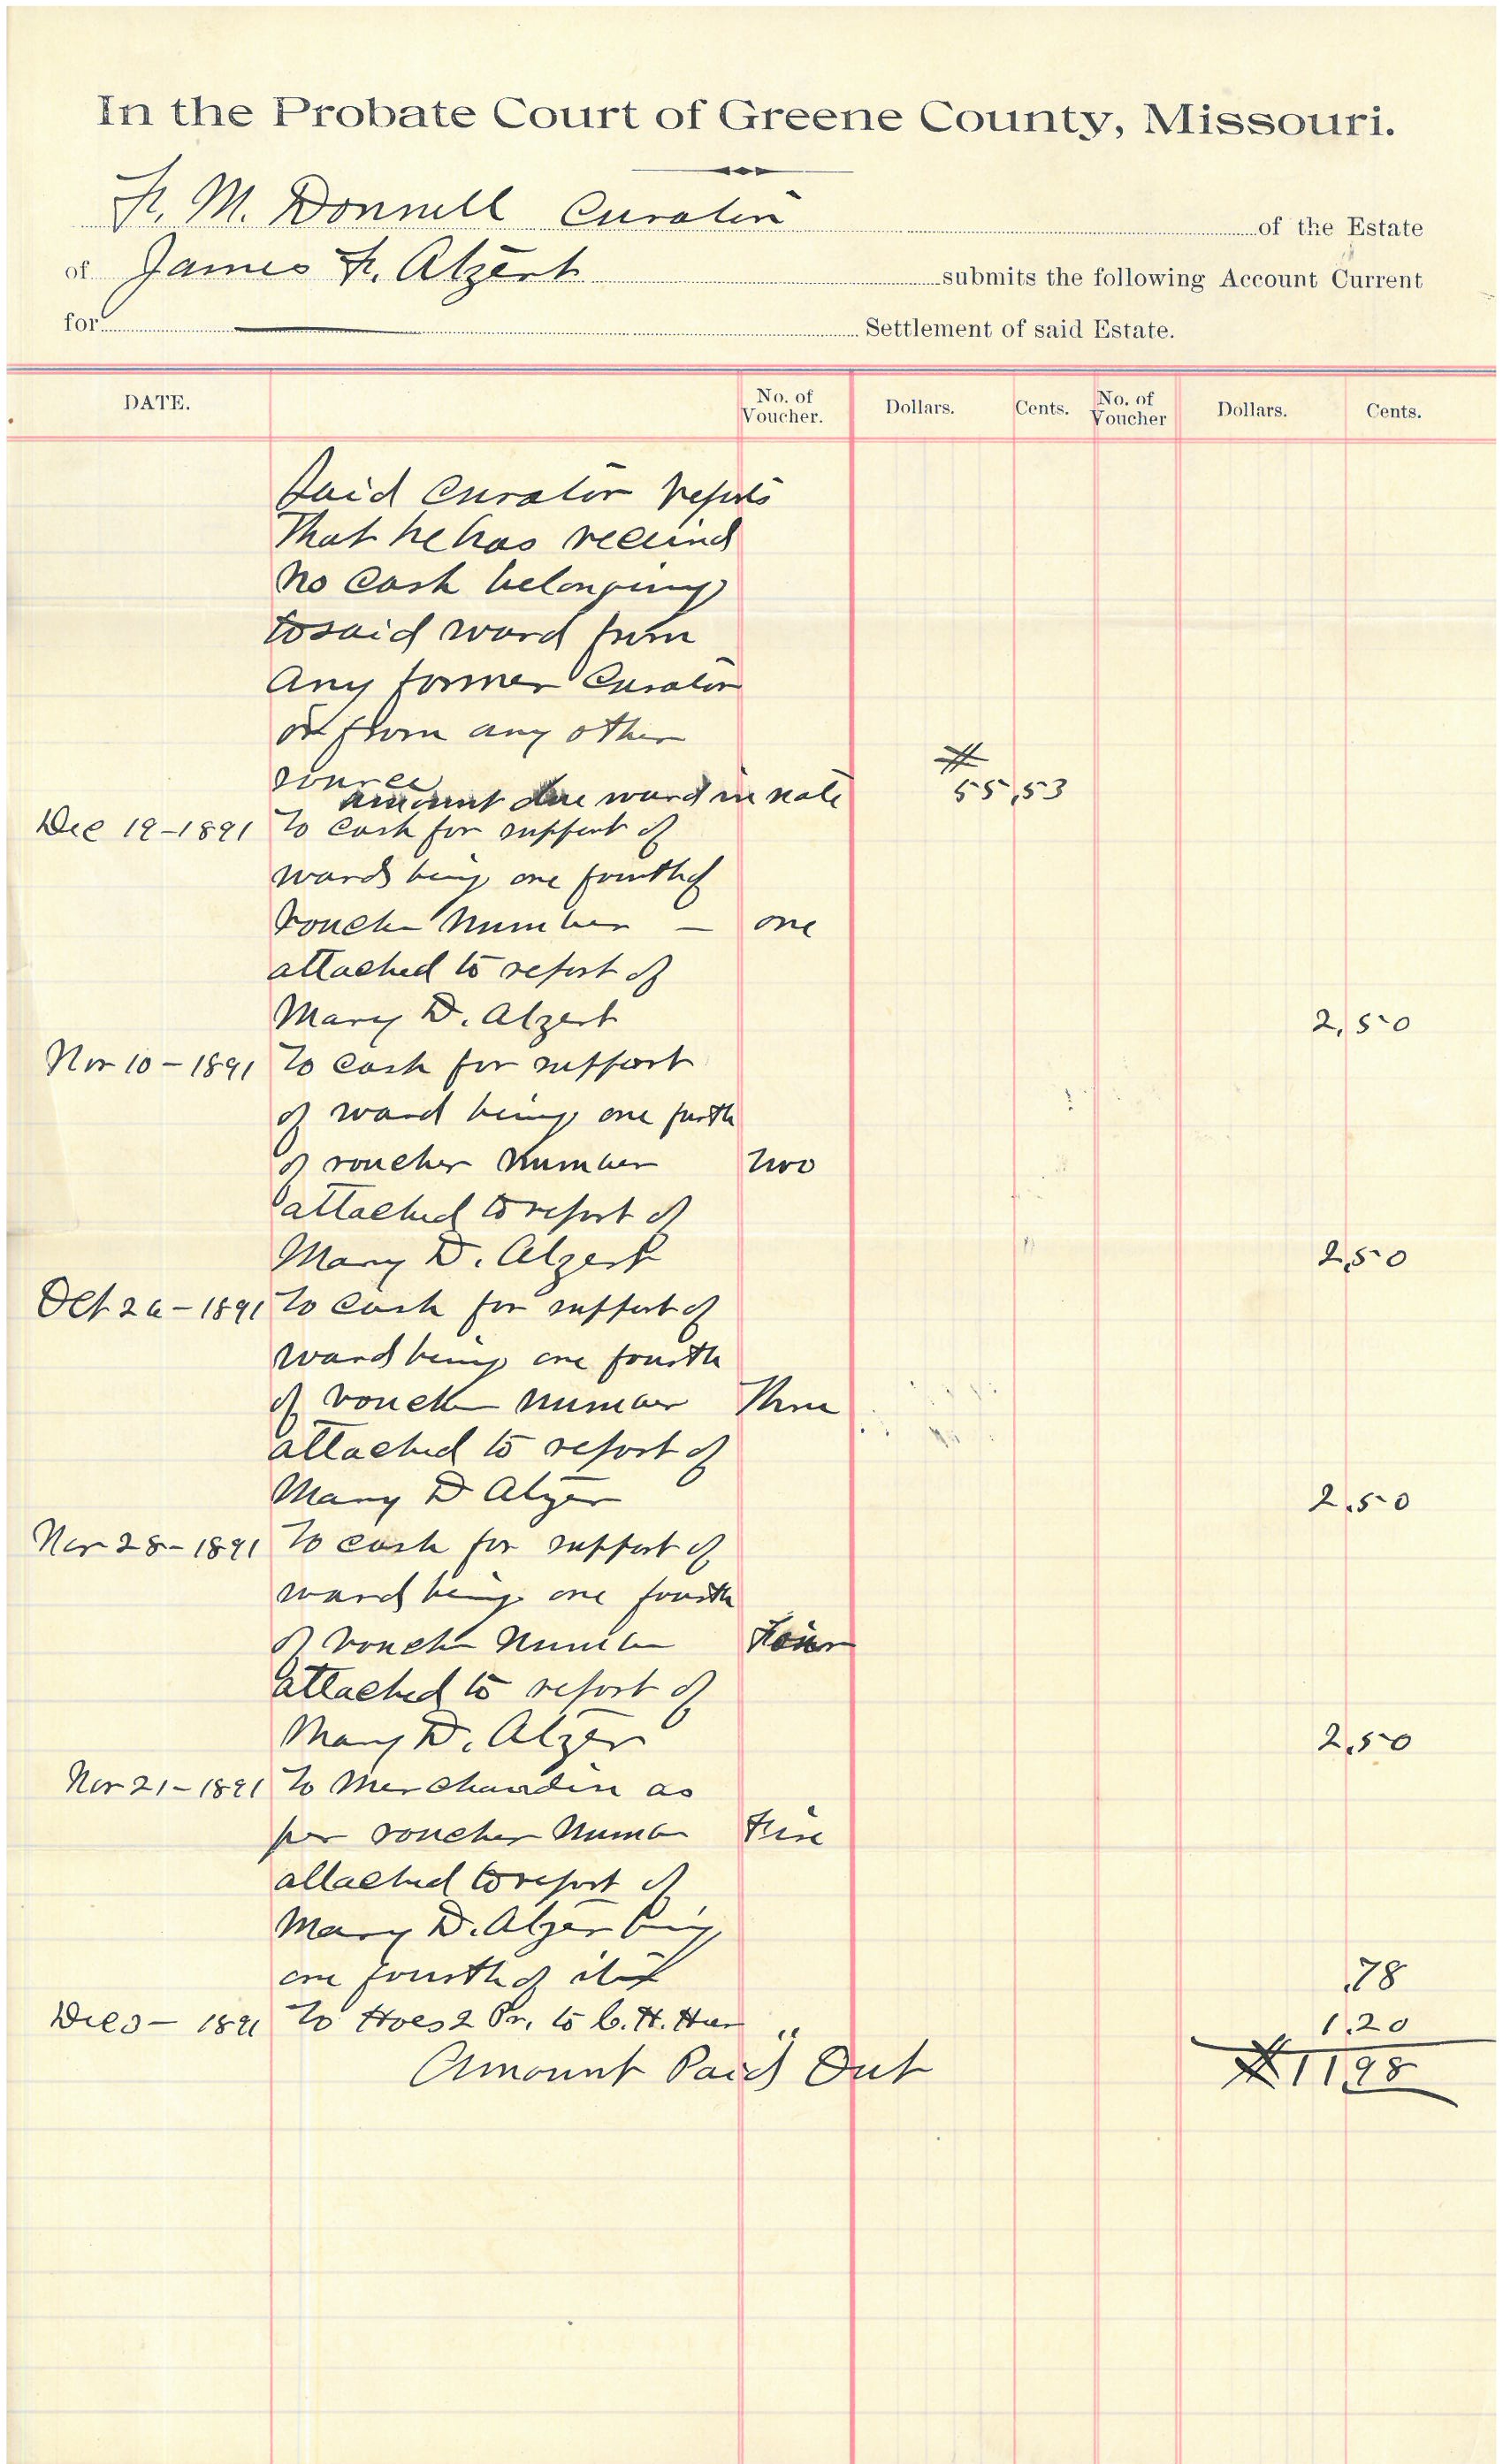 In the Probate Court of Greene County, Missouri.
F. M. Donnell Curator of the Estate
of James F. Alzert submits the following Account Current
for Settlement of said Estate.
DATE. No. of Voucher. Dollars. Cents. No. of Voucher Dollars. Cents.
Said Curator reports
That he has received
no Cash belonging
to said ward from
any former Curator
or from any other
source
amount due ward in note # 55,53
Dec 19-1891 To Cash for support of
ward being one fourth of
Voucher Number - one
attached to report of
Mary D. Alzert 2,50
Nov 10-1891 To Cash for support
of ward being one forth
of voucher Number Two
attached to report of
Mary D. Alzert 2,50
Oct 26-1891 To Cash for support of
ward being one fourth
of voucher number Three
attached to report of
Mary D Alzer 2.50
Nov 28-1891 To cash for support of
ward being one fourth
of voucher Number Four
attached to report of
Mary D. Alzer 2.50
Nov 21-1891 To Merchandise as
per voucher Number Five
attached to report of
Mary D. Alzer being
one fourth of it .78
Dec 3-1891 To Hoes 2 Pr. to C. H. " 1.20
Amount Paid Out $1198